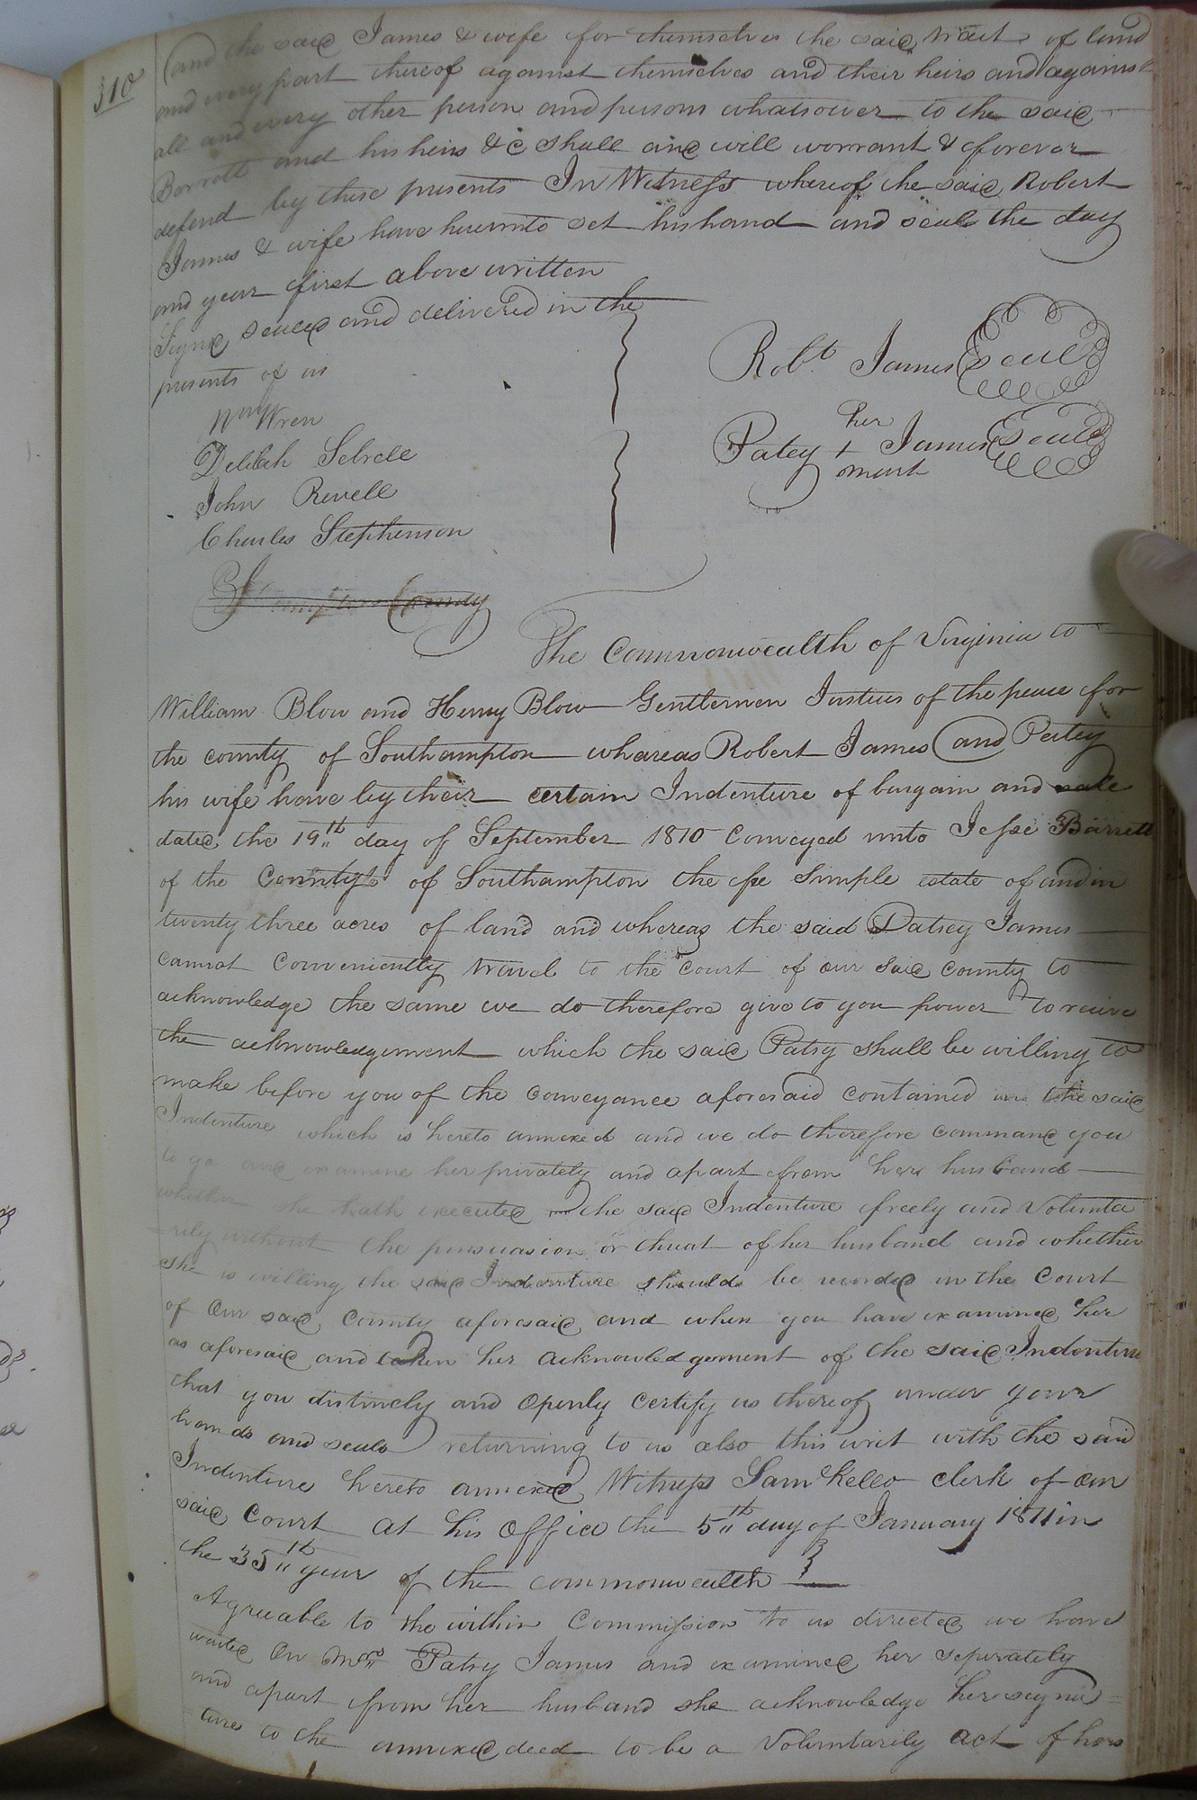 310
and the said James & wife for themselves the said tract of land
and every part thereof against themselves and their heirs and against
all and every other person and persons whatsoever to the said
Barrott and his heirs &c shall and will warrant & forever
defend by these presents In Witness whereof the said Robert
James & wife have hereunto set his hand and seale the day
and year first above written
Signd sealed and delivered in the
presents of us
Wm Wren
Delilah Sebrell
John Revell
Charles Stephenson
Robt. James Seal
her
Patey + James Seal
mark
The Commonwealth of Virginia to
William Blow and Henry Blow Gentlemen Justices of the peace for
the county of Southampton whareas Robert James and Patey
his wife have by their certain Indenture of bargain and sale
dated the 19th day of September 1810 Conveyed unto Jesse Barrett
of the County of Southampton the fee Simple estate of and in
twenty three acres of land and whereas the said Patsey James
cannot Conveniently travel to the Court of our said county to
acknowledge the same we do therefore give to you power to receive
the acknowledgement which the said Patsy shall be willing to
make before you of the conveyance aforesaid contained in the said
Indenture which is hereto annexed and we do therefore command you
to go and examine her privately and apart from her husband
whether she hath executed the said Indenture freely and Volunta
rily without the persuasion or threat of her husband and whether
she is willing the said Indenture should be recorded in the Court
of Our said County aforesaid and when you have examined her
as aforesaid and taken her acknowledgement of the said Indenture
that you distinctly and Openly Certify us thereof under your
hands and seals returning to us also this writ with the said
Indenture hereto annexed Witness Saml Kello clerk of our
said Court at his Office the 5th day of January 1811 in
the 35th year of the commonwealth
Agreeable to the within Commission to us directed we have
waited On Mrs Patsy James and examined her seperately
and apart from her husband she acknowledge her signa=
ture to the annexed deed to be a Voluntarily act of hers